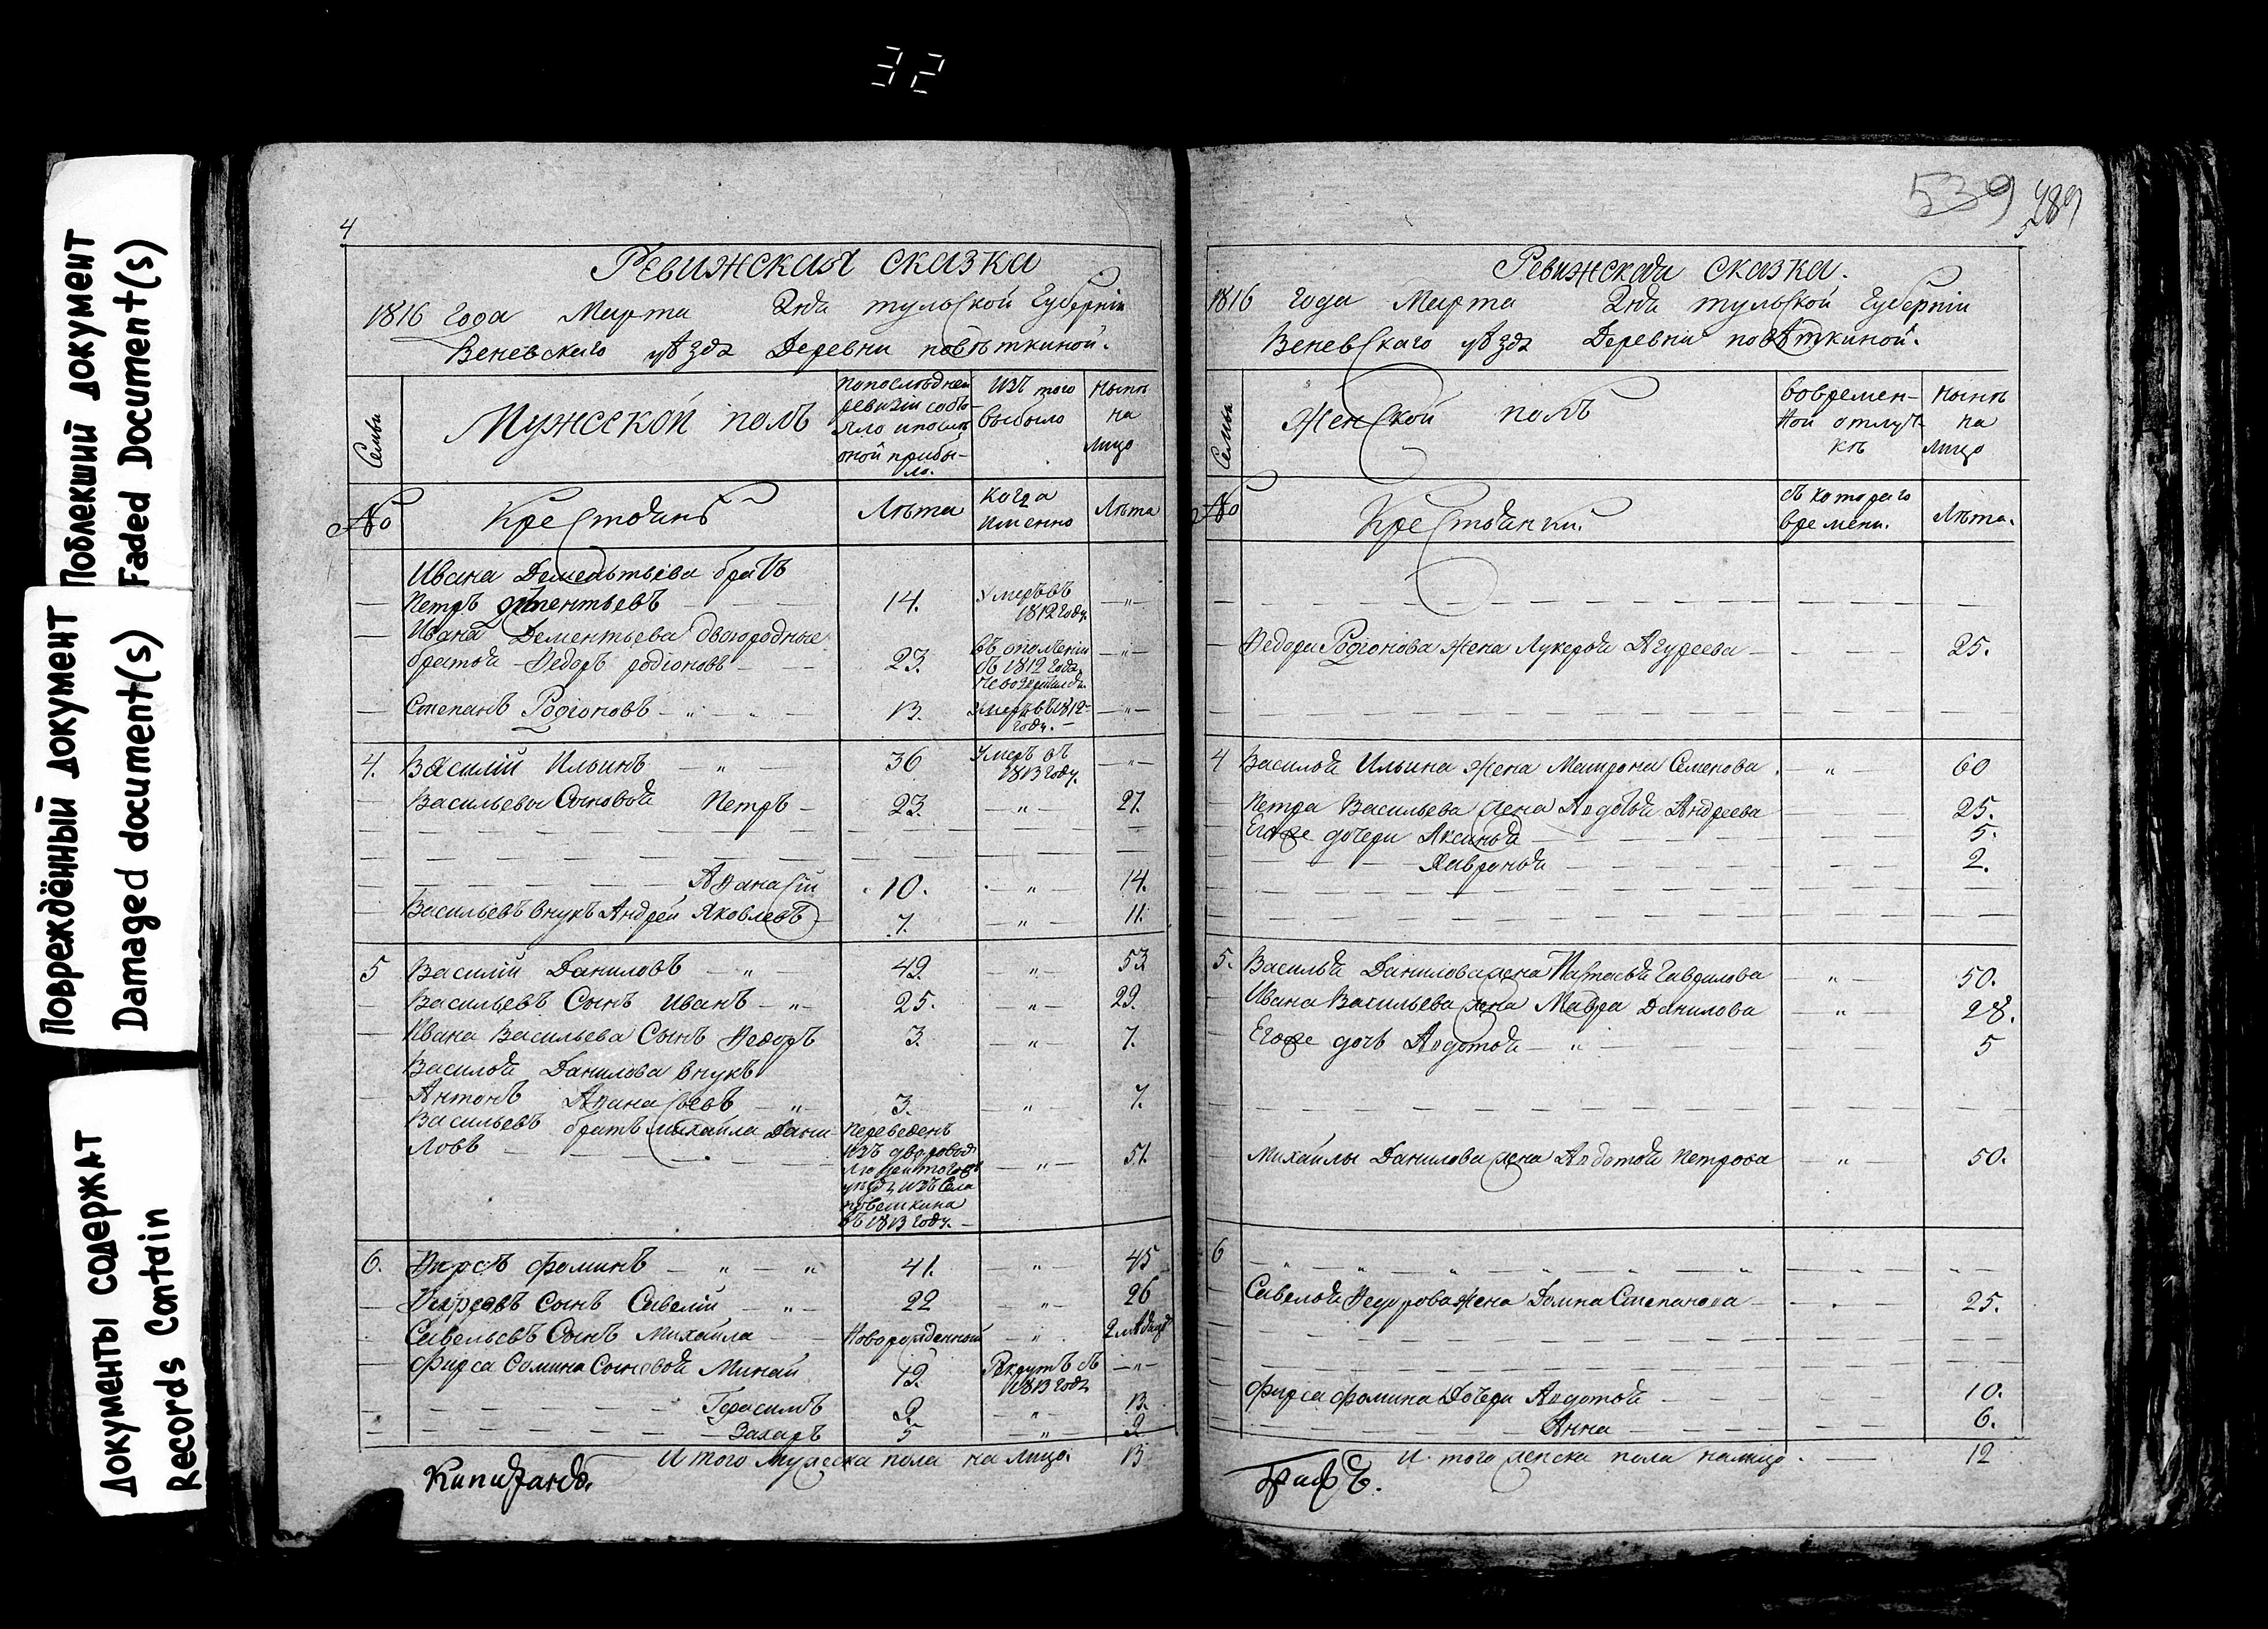 32
Поблекший документ
Faded Document(s)
Повреждённый документ
Damaged document(s)
Документы содержат
Records Contain
4
Ревижская сказка
1816 года Марта дня тульской Губерніи
Веневскаго уѣзда Деревни повѣткиной.
Семьи
Мужеской полъ
Попослѣдней
ревизіи состо-
яло ипослѣ
оной прибы-
ло.
Изъ того
выбыло
Нынѣ
на
лицо
№
Крестьянъ
Лѣта
Когда
именно
Лѣта
Ивана Дементьева братъ
Петръ Дементьевъ 14. Умеръ въ
1812 году.
Ивана Дементьева двоюродные
братья Ѳедоръ родіоновъ 23. въ ополченіи
съ 1812 года
невозвратился.
Степанъ Родіоновъ 13. умеръ въ 1812
году.
4. Василій Ильинъ 36 Умеръ въ
1813 году.
Васильевы Сыновья Петръ 23. 27.
Аѳанасій 10. 14.
Васильевъ внукъ Андрей Яковлевъ 7. 11.
5 Василій Даниловъ 49. 53
Васильевъ Сынъ Иванъ 25. 29.
Ивана Васильева Сынъ Ѳедоръ 3. 7.
Василья Данилова внукъ
Антонъ Аѳанасьевъ 3. 7.
Васильевъ братъ михайла Дани-
ловъ 51.
Переведенъ
изъ дворовых
людей тогож
уезда изъ Села
поветкина
въ 1813 году.
6. Ѳирсъ Фоминъ 41. 45
Ѳирсовъ сынъ Савелій 22 26
Савельевъ Сынъ Михайла Новорожденный 2 мѣсяцъ
Фирса Фомина Сыновья Минай 19. Рекрутъ съ
1813 года
Герасимъ 9. 13.
Захаръ 5 9
Итого Мужеска пола на лицо. 13
539
489
5
Ревижская сказка.
1816 года Марта дня тульской Губерніи
Веневскаго уѣзда Деревни повѣткиной.
Семьи
Женской полъ
вовремен-
ной отлуч-
кѣ
Нынѣ
на
лицо
№
Крестьянки.
съ котораго
времени.
Лѣта.
Ѳедора Родіонова жена Лукерья Агуреева 25.
4 Василья Ильина жена Матрона Семенова 60
Петра Васильева жена Авдотья Андреева 25.
Егоже дочери Аксинья 5.
Хавронья 2.
5. Василья Данилова жена Настасья Гаврилова 50.
Ивана Васильева жена Мавра Данилова 28.
Егоже дочь Авдотья 5
Михайлы Данилова жена Авдотья Петрова 50.
6
Савелья жена Домна Степанова 25.
Фирса Фомина Дочери Авдотья 10.
Анна 6.
Итого женска пола налицо. 12
Графъ.